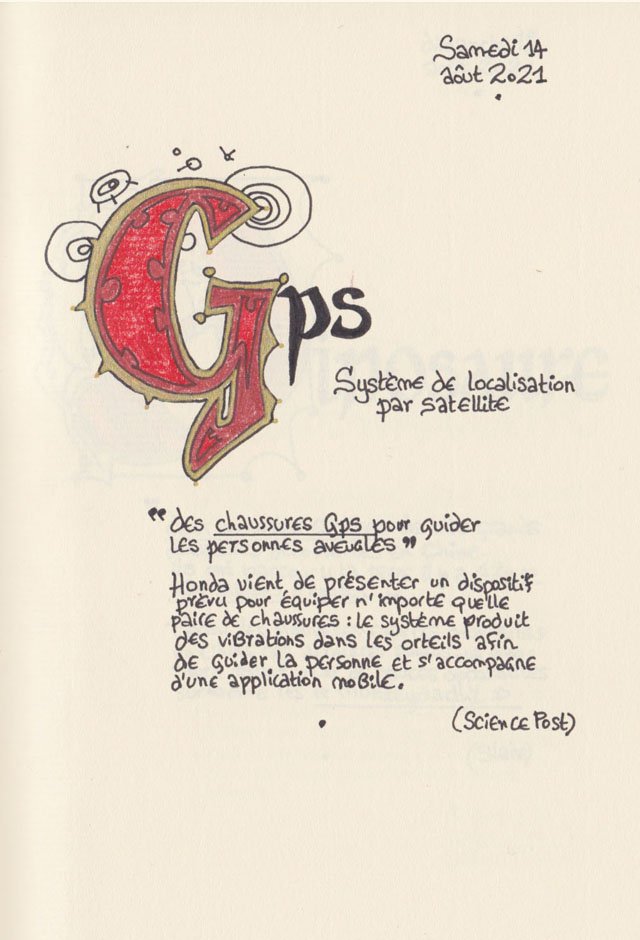 Samedi 14
août 2021
Gps
Système de localisation
par satellite
“des chaussures Gps pour guider
les personnes aveugles”
Honda vient de présenter un dispositif
prévu pour équiper n'importe quelle
paire de chaussures : le système produit
des vibrations dans les orteils afin
de guider la personne et s'accompagne
d'une application mobile.
(Science Post)